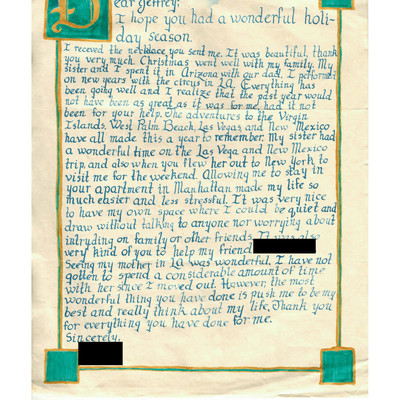 Dear Jeffrey;
I hope you had a wonderful holi-
day season.
I receved the necklace you sent me. It was beautiful, thank
you very much. Christmas went well with my family. My
sister and I spent it in Arizona with our dad. I performed
on new years with the circus in LA. Everything has
been going well and I realize that the past year would
not have been as great as it was for me, had it not
been for your help. The adventures to the Virgin
Islands, West Palm Beach, Las Vegas, and New Mexico
have all made this a year to remember. My sister had
a wonderful time on the Las Vegas and New Mexico
trip and also when you flew her out to New York to
visit me for the weekend. Allowing me to stay in
your apartment in Manhattan made my life so
much easier and less stressful. It was very nice
to have my own space where I could be quiet and
draw without talking to anyone nor worrying about
intruding on family or other friends. It was also
very kind of you to help my friend
Seeing my mother in LA was wonderful. I have not
gotten to spend a considerable amount of time
with her since I moved out. However, the most
wonderful thing you have done is push me to be my
best and really think about my life. Thank you
for everything you have done for me.
Sincerely,